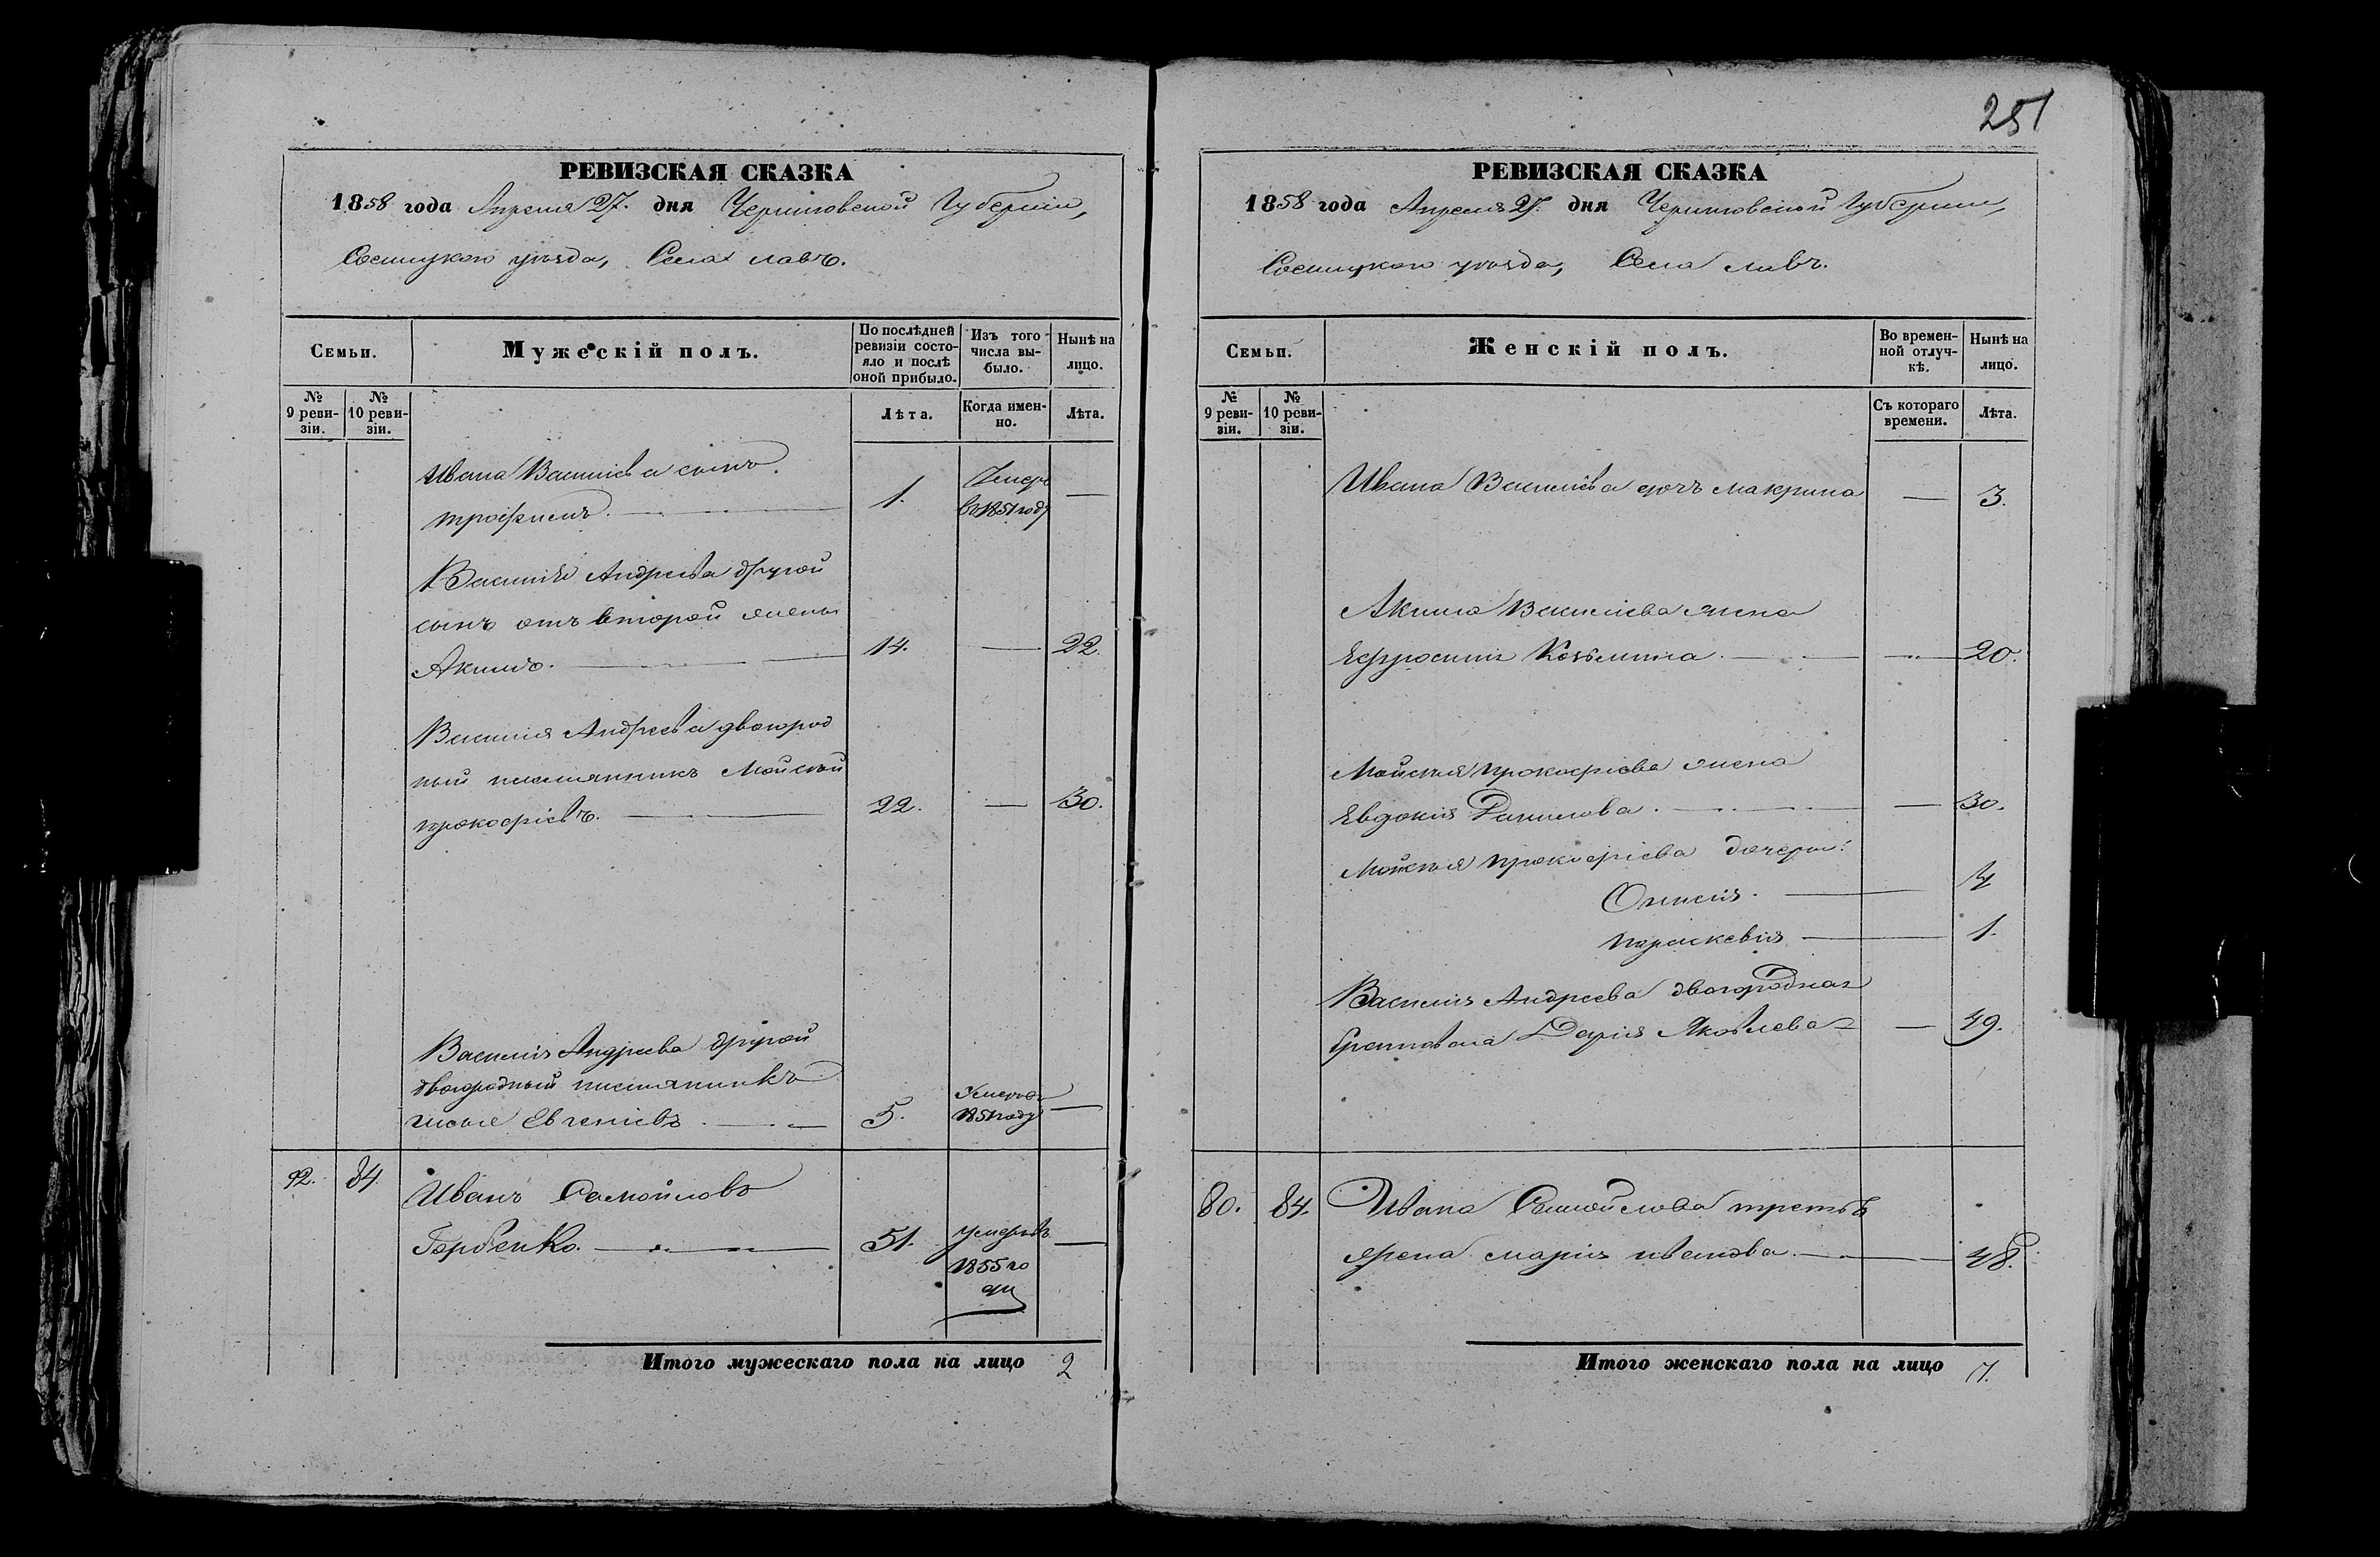 251
РЕВИЗСКАЯ СКАЗКА
1858 года Апреля 27. дня Черниговской Губернии,
Сосницкого уезда, Села Лавъ.
Семьи.
Мужескій полъ.
По послѣдней ревизіи состояло и послѣ оной прибыло.
Изъ того числа выбыло.
Нынѣ на лицо.
№ 9 ревизіи.
№ 10 ревизіи.
Лѣта.
Когда именно.
Лѣта.
Ивана Василіева сынъ
трофимъ. 1. Умеръ
въ 1851 году —
Василія Андреева другой
сынъ отъ второй жены
Акимъ. 14. — 22.
Василія Андреева двоюрод
ный племянникъ Мойсей
прокофіевъ. 22. — 30.
Василія Андреева другой
двоюродный племянникъ
Евгеніевъ 5. Умеръ
1851 году —
92. 84. Иванъ Самойловъ
Горбенко. 51. умеръ въ —
1855 го
ду
Итого мужескаго пола на лицо 2
РЕВИЗСКАЯ СКАЗКА
1858 года Апреля 27. дня Черниговской Губернии,
Сосницкого уезда, Села Лавъ.
Семьи.
Женскій полъ.
Во временной отлучкѣ.
Нынѣ на лицо.
№ 9 ревизіи.
№ 10 ревизіи.
Съ котораго времени.
Лѣта.
Ивана Василіева дочъ макрина — 3.
Акима Василіева жена
Ефросинія 20.
Мойсея прокофіева жена
Евдокия Данилова. — 30.
Мойсея прокофіева дочери:
4
параскевія 1.
Василія Андреева двоюродная
Дарія Яковлева — 49.
80. 84. Ивана Самойлова третья
жена марія иванова. 48.
Итого женскаго пола на лицо 7.